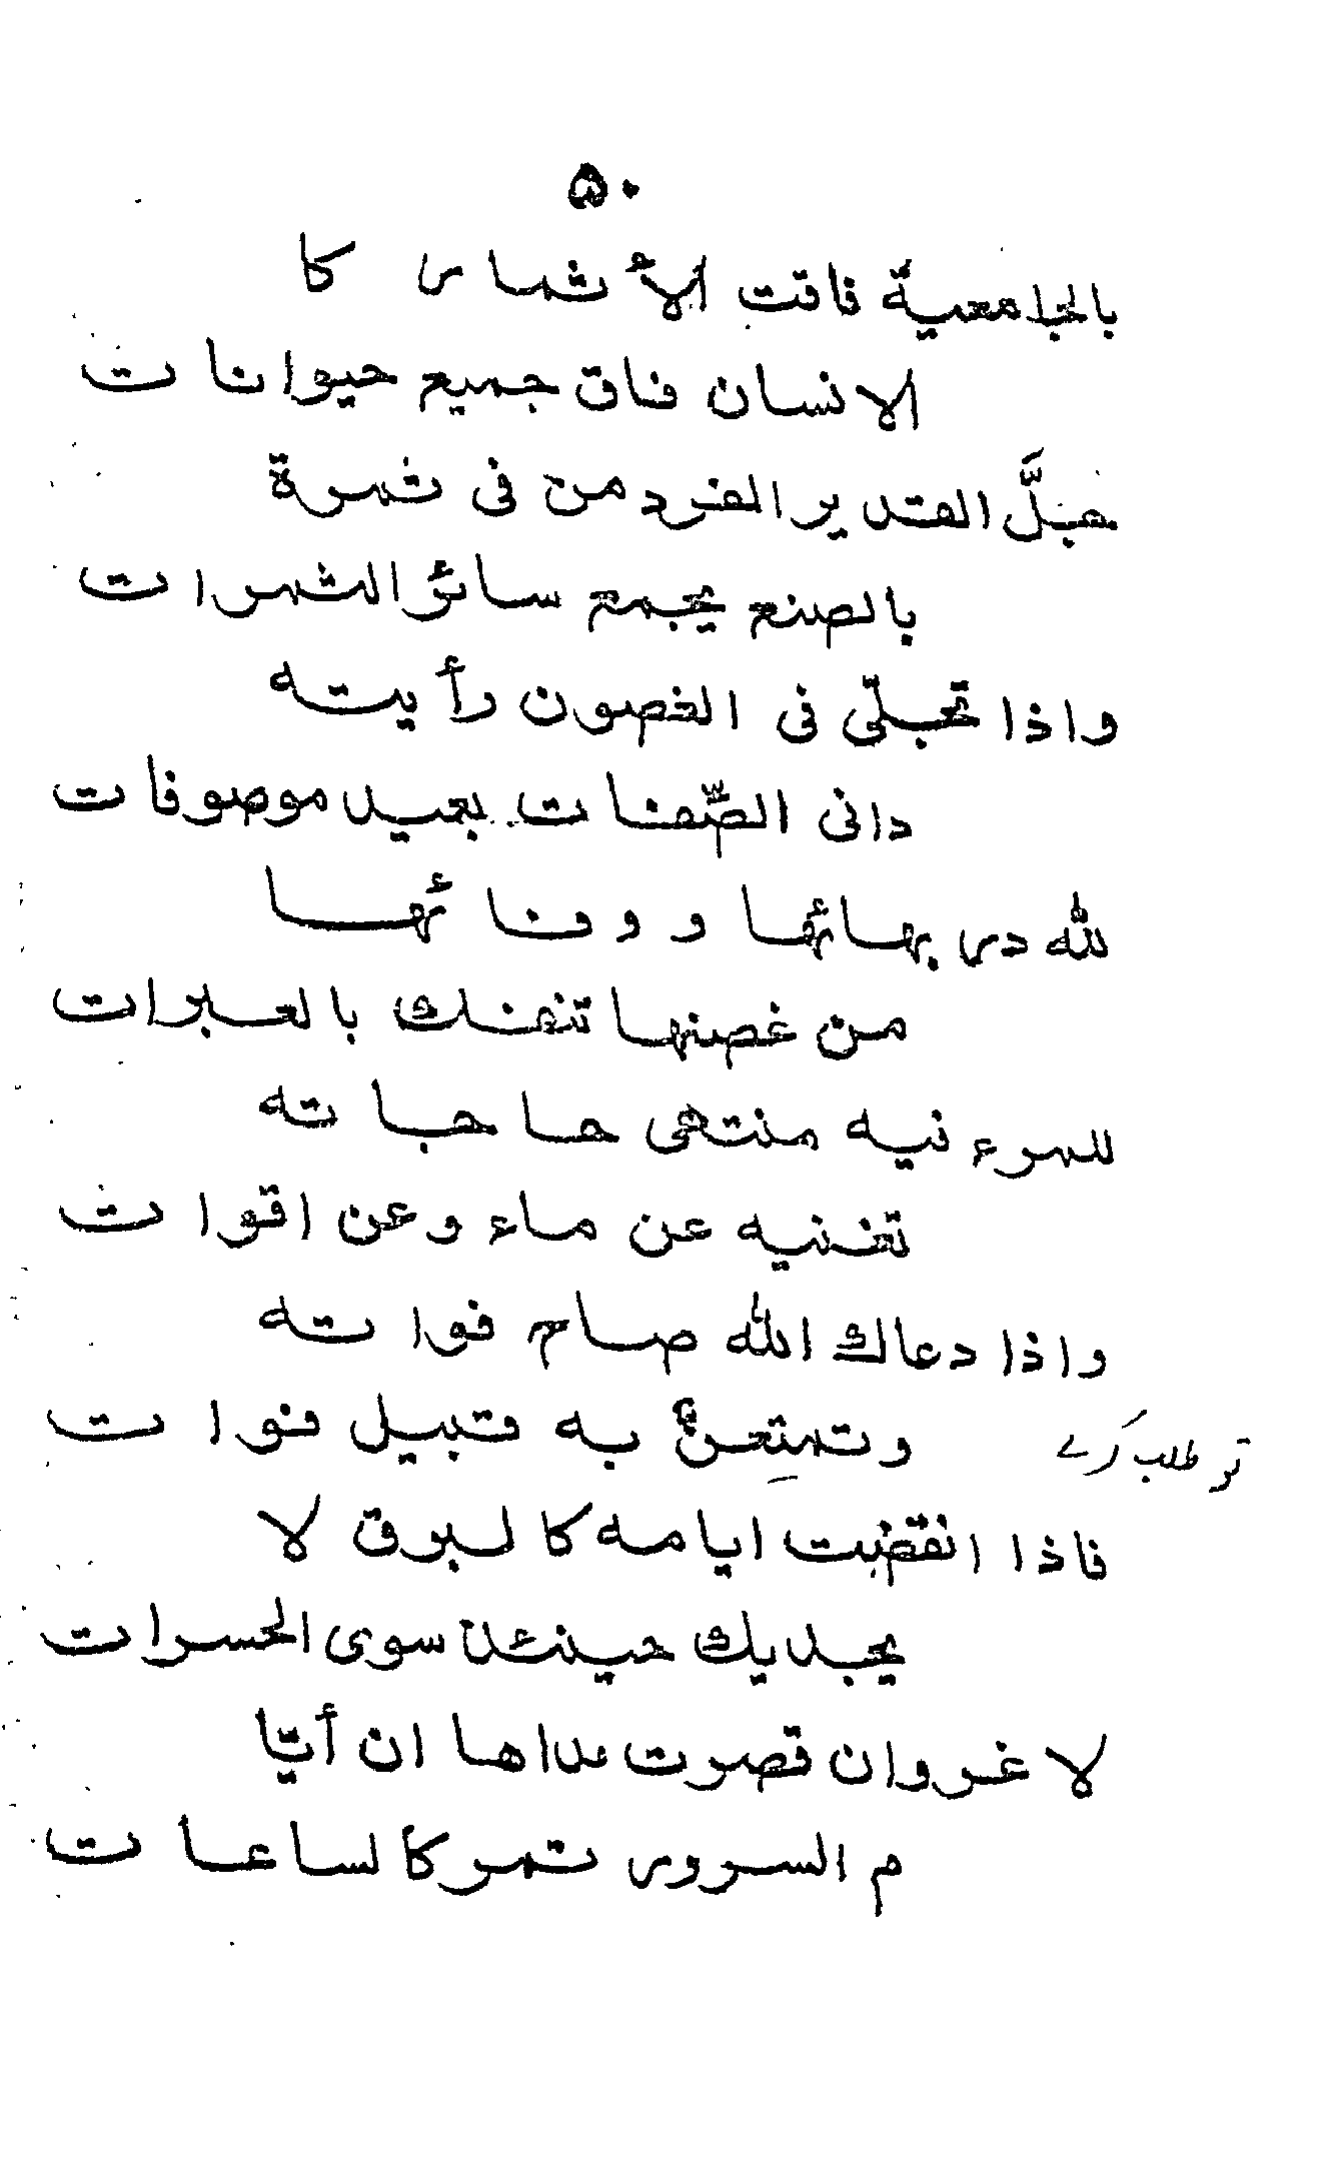 ۵۰
بالجامعية فاقت الأثمار كا
لانسان فاق جميع حيوانات
جلَّ القدير الفرد من فى ثمرة
بالصنع يجمع سائر الثمرات
واذا تجلّى فى الغصون رأيته
دانى الصّفات بعيد موصوفات
لله در بهائها ووفائها
من غصنها تنفك بالعبرات
للمرء فيه منتهى حاجاته
تغنيه عن ماء وعن اقوات
واذا دعاك الله صاح فواته
وتمتعن به قبيل فوات
تو طلب کرے
فاذا انقضت ايامه كالبرق لا
يجديك حينئذ سوى الحسرات
لا غروان قصرت مداها ان أيّا
م السرور تمر كالساعات